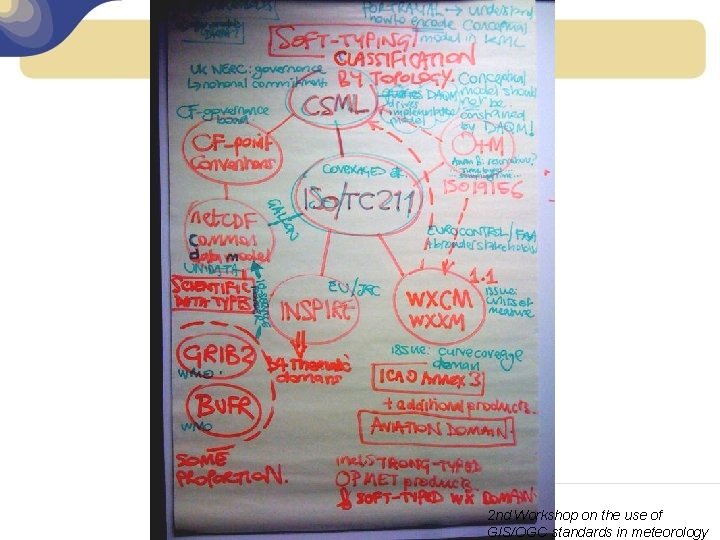 FORTRAYAL → understand
how to encode conceptual
model in
SOFT-TYPING!
CLASSIFICATION
BY TOPOLOGY.
UK NERC: governance
↳ notional commitment
CSML
DAQM
drives
implementation
model
Conceptual
model should
not be
constrained
by DAQM!
CF-governance
board
CF-point
Conventions
O+M
ISO19156
COVERAGES etc.
ISO/TC211
netCDF
common
data model
UNIDATA
GALEON
EUROCONTROL/FAA
+ broader stakeholders
SCIENTIFIC
DATA TYPES
EU/JRC
INSPIRE
1.1
WXCM
WXXM
issue:
units of
measure
GRIB2
WMO
34 Thematic
domains
issue: curve coverage
domain
ICAO Annex 3
BUFR
WMO
+ additional products.
AVIATION DOMAIN.
SOME
PROPORTION.
incl. STRONG-TYPED
OPMET products
& SOFT-TYPED WX DOMAIN.
2nd Workshop on the use of
GIS/OGC standards in meteorology